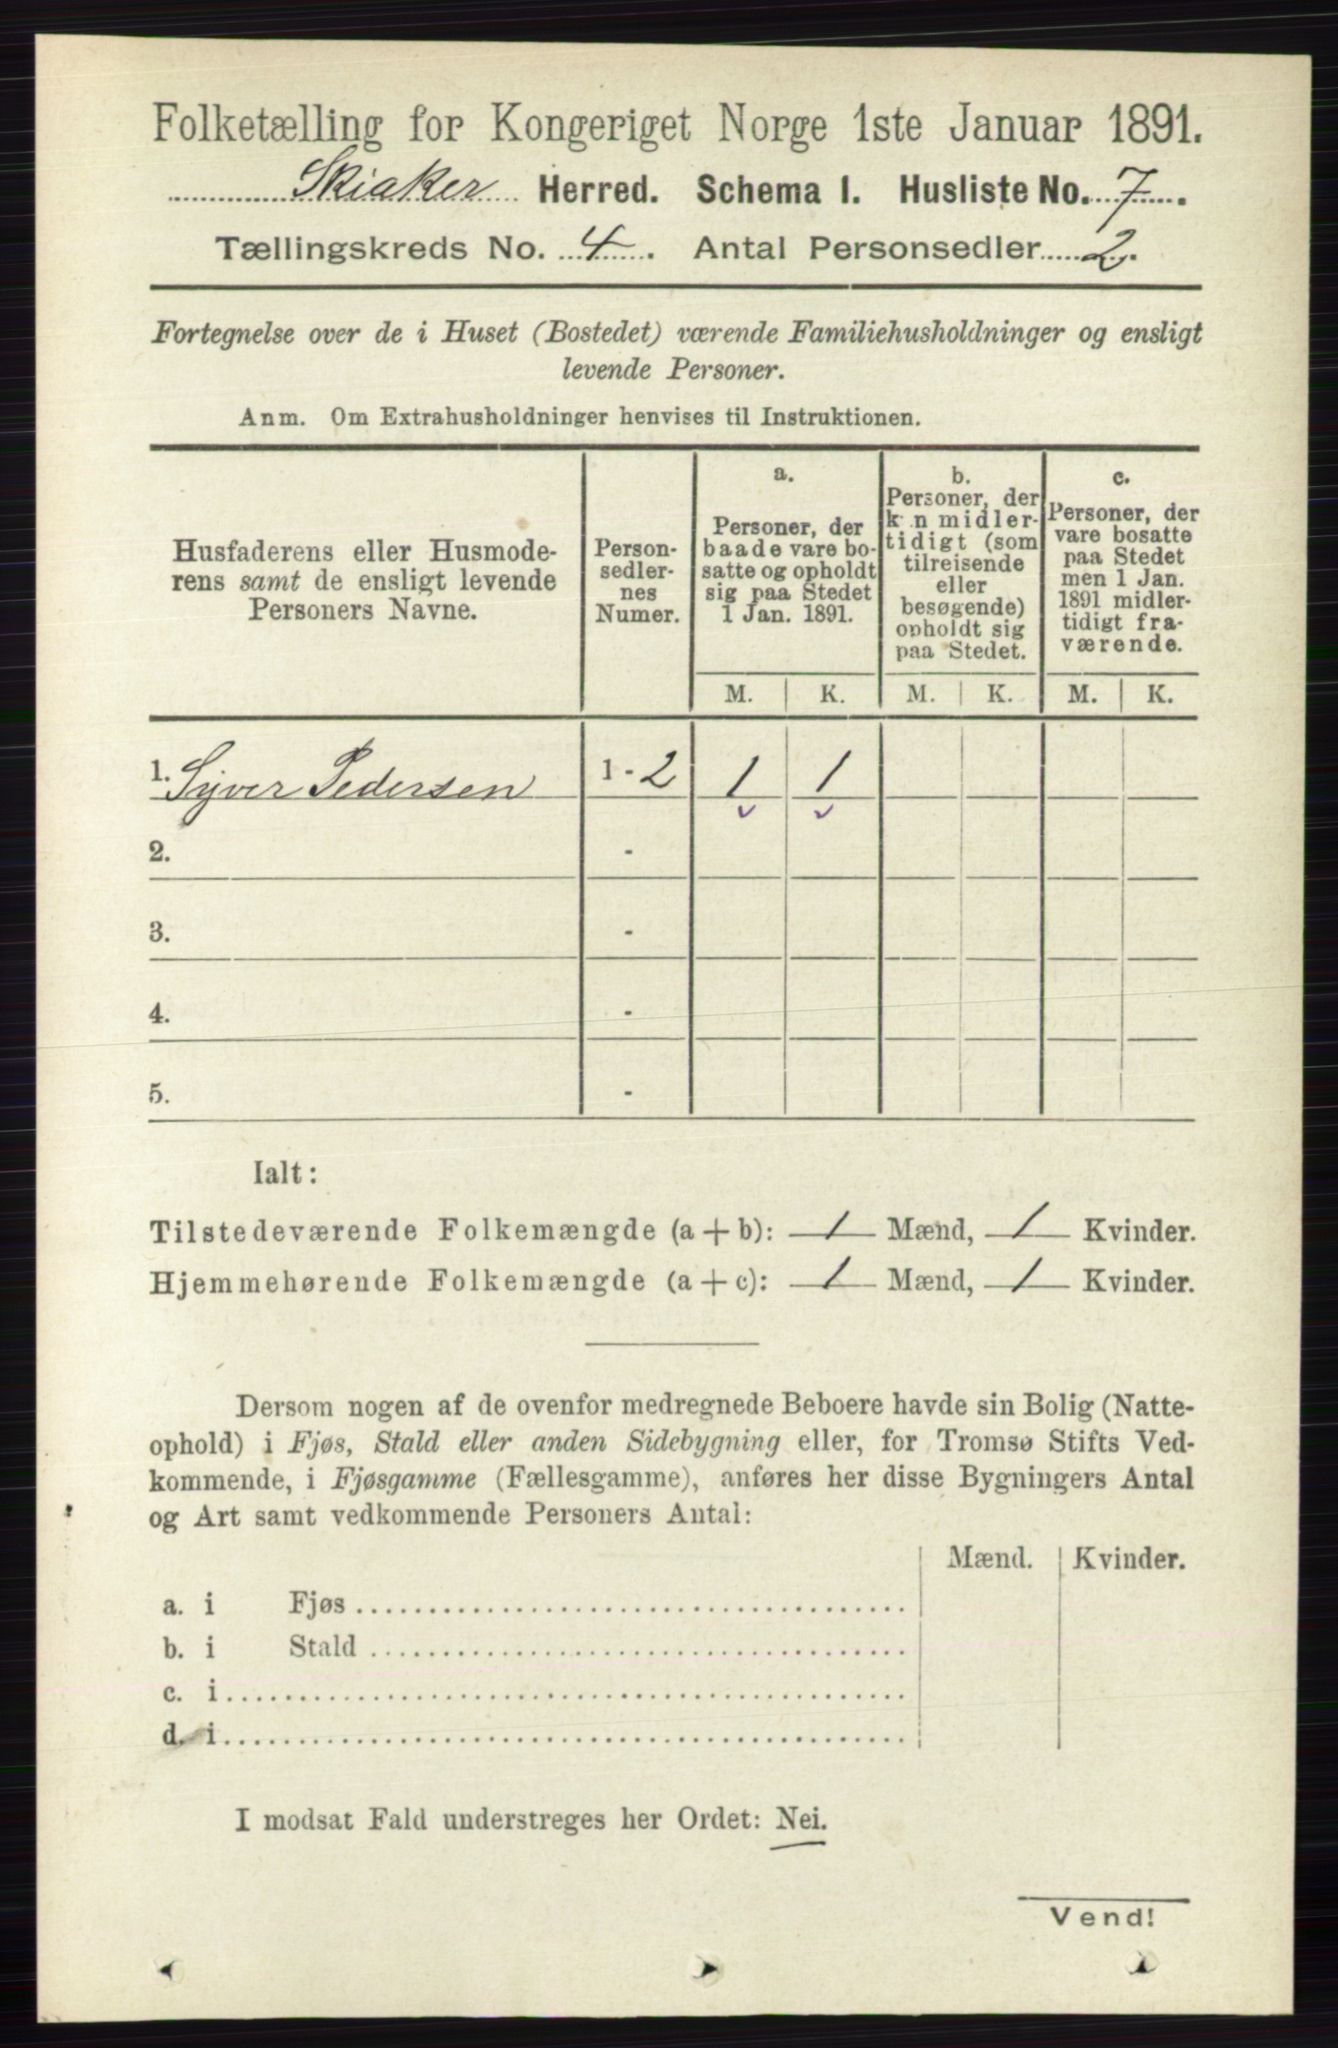 Folketælling for Kongeriget Norge 1ste Januar 1891.
Skiaker Herred. Schema I. Husliste No. 7.
Tællingskreds No. 4. Antal Personsedler 2.
Fortegnelse over de i Huset (Bostedet) værende Familiehusholdninger og ensligt
levende Personer.
Anm. Om Extrahusholdninger henvises til Instruktionen.
Husfaderens eller Husmode-
rens samt de ensligt levende
Personers Navne.
Person-
sedler-
nes
Numer.
a.
Personer, der
baade vare bo-
satte og opholdt
sig paa Stedet
1 Jan. 1891.
b.
Personer, der
k n midler-
tidigt (som
tilreisende
eller
besøgende)
opholdt sig
paa Stedet.
c.
Personer, der
vare bosatte
paa Stedet
men 1 Jan.
1891 midler-
tidigt fra-
værende.
M. K. M. K. M. K.
1. Syver Pedersen 1 - 2 1 1
2. -
3. -
4. -
5. -
Ialt:
Tilstedeværende Folkemængde (a + b): 1 Mænd, 1 Kvinder.
Hjemmehørende Folkemængde (a + c): 1 Mænd, 1 Kvinder.
Dersom nogen af de ovenfor medregnede Beboere havde sin Bolig (Natte-
ophold) i Fjøs, Stald eller anden Sidebygning eller, for Tromsø Stifts Ved-
kommende, i Fjøsgamme (Fællesgamme), anføres her disse Bygningers Antal
og Art samt vedkommende Personers Antal:
Mænd. Kvinder.
a. i Fjøs
b. i Stald
c. i
d. i
I modsat Fald understreges her Ordet: Nei.
Vend!